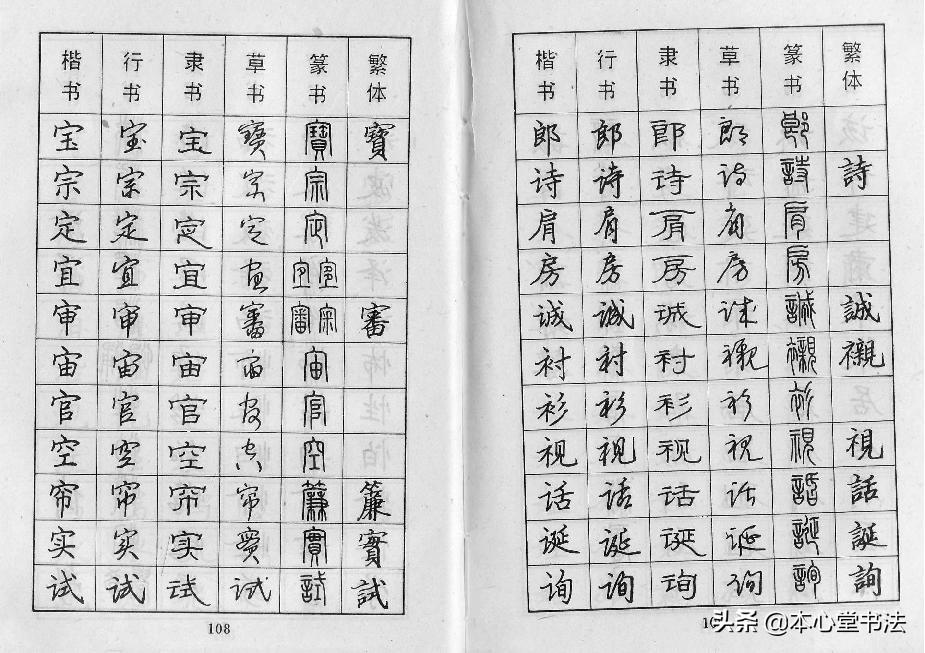 楷书 行书 隶书 草书 篆书 繁体
宝 宝 宝 寶 寶 寶
宗 宗 宗 宗 宗
定 定 定 定 定
宜 宜 宜 宜 宜 宜
审 审 审 審 審 宷 審
宙 宙 宙 宙 宙
官 官 官 官 官
空 空 空 空 空
帘 帘 帘 帘 簾 簾
实 实 实 實 實 實
试 试 试 试 試 試
108
楷书 行书 隶书 草书 篆书 繁体
郎 郎 郎 郎 郎
诗 诗 诗 诗 詩 詩
肩 肩 肩 肩 肩
房 房 房 房 房
诚 诚 诚 诚 誠 誠
衬 衬 衬 襯 襯 襯
衫 衫 衫 衫 衫
视 视 视 視 視 視
话 话 话 话 話 話
诞 诞 诞 诞 誕 誕
询 询 询 询 詢 詢
头条 @本心堂书法